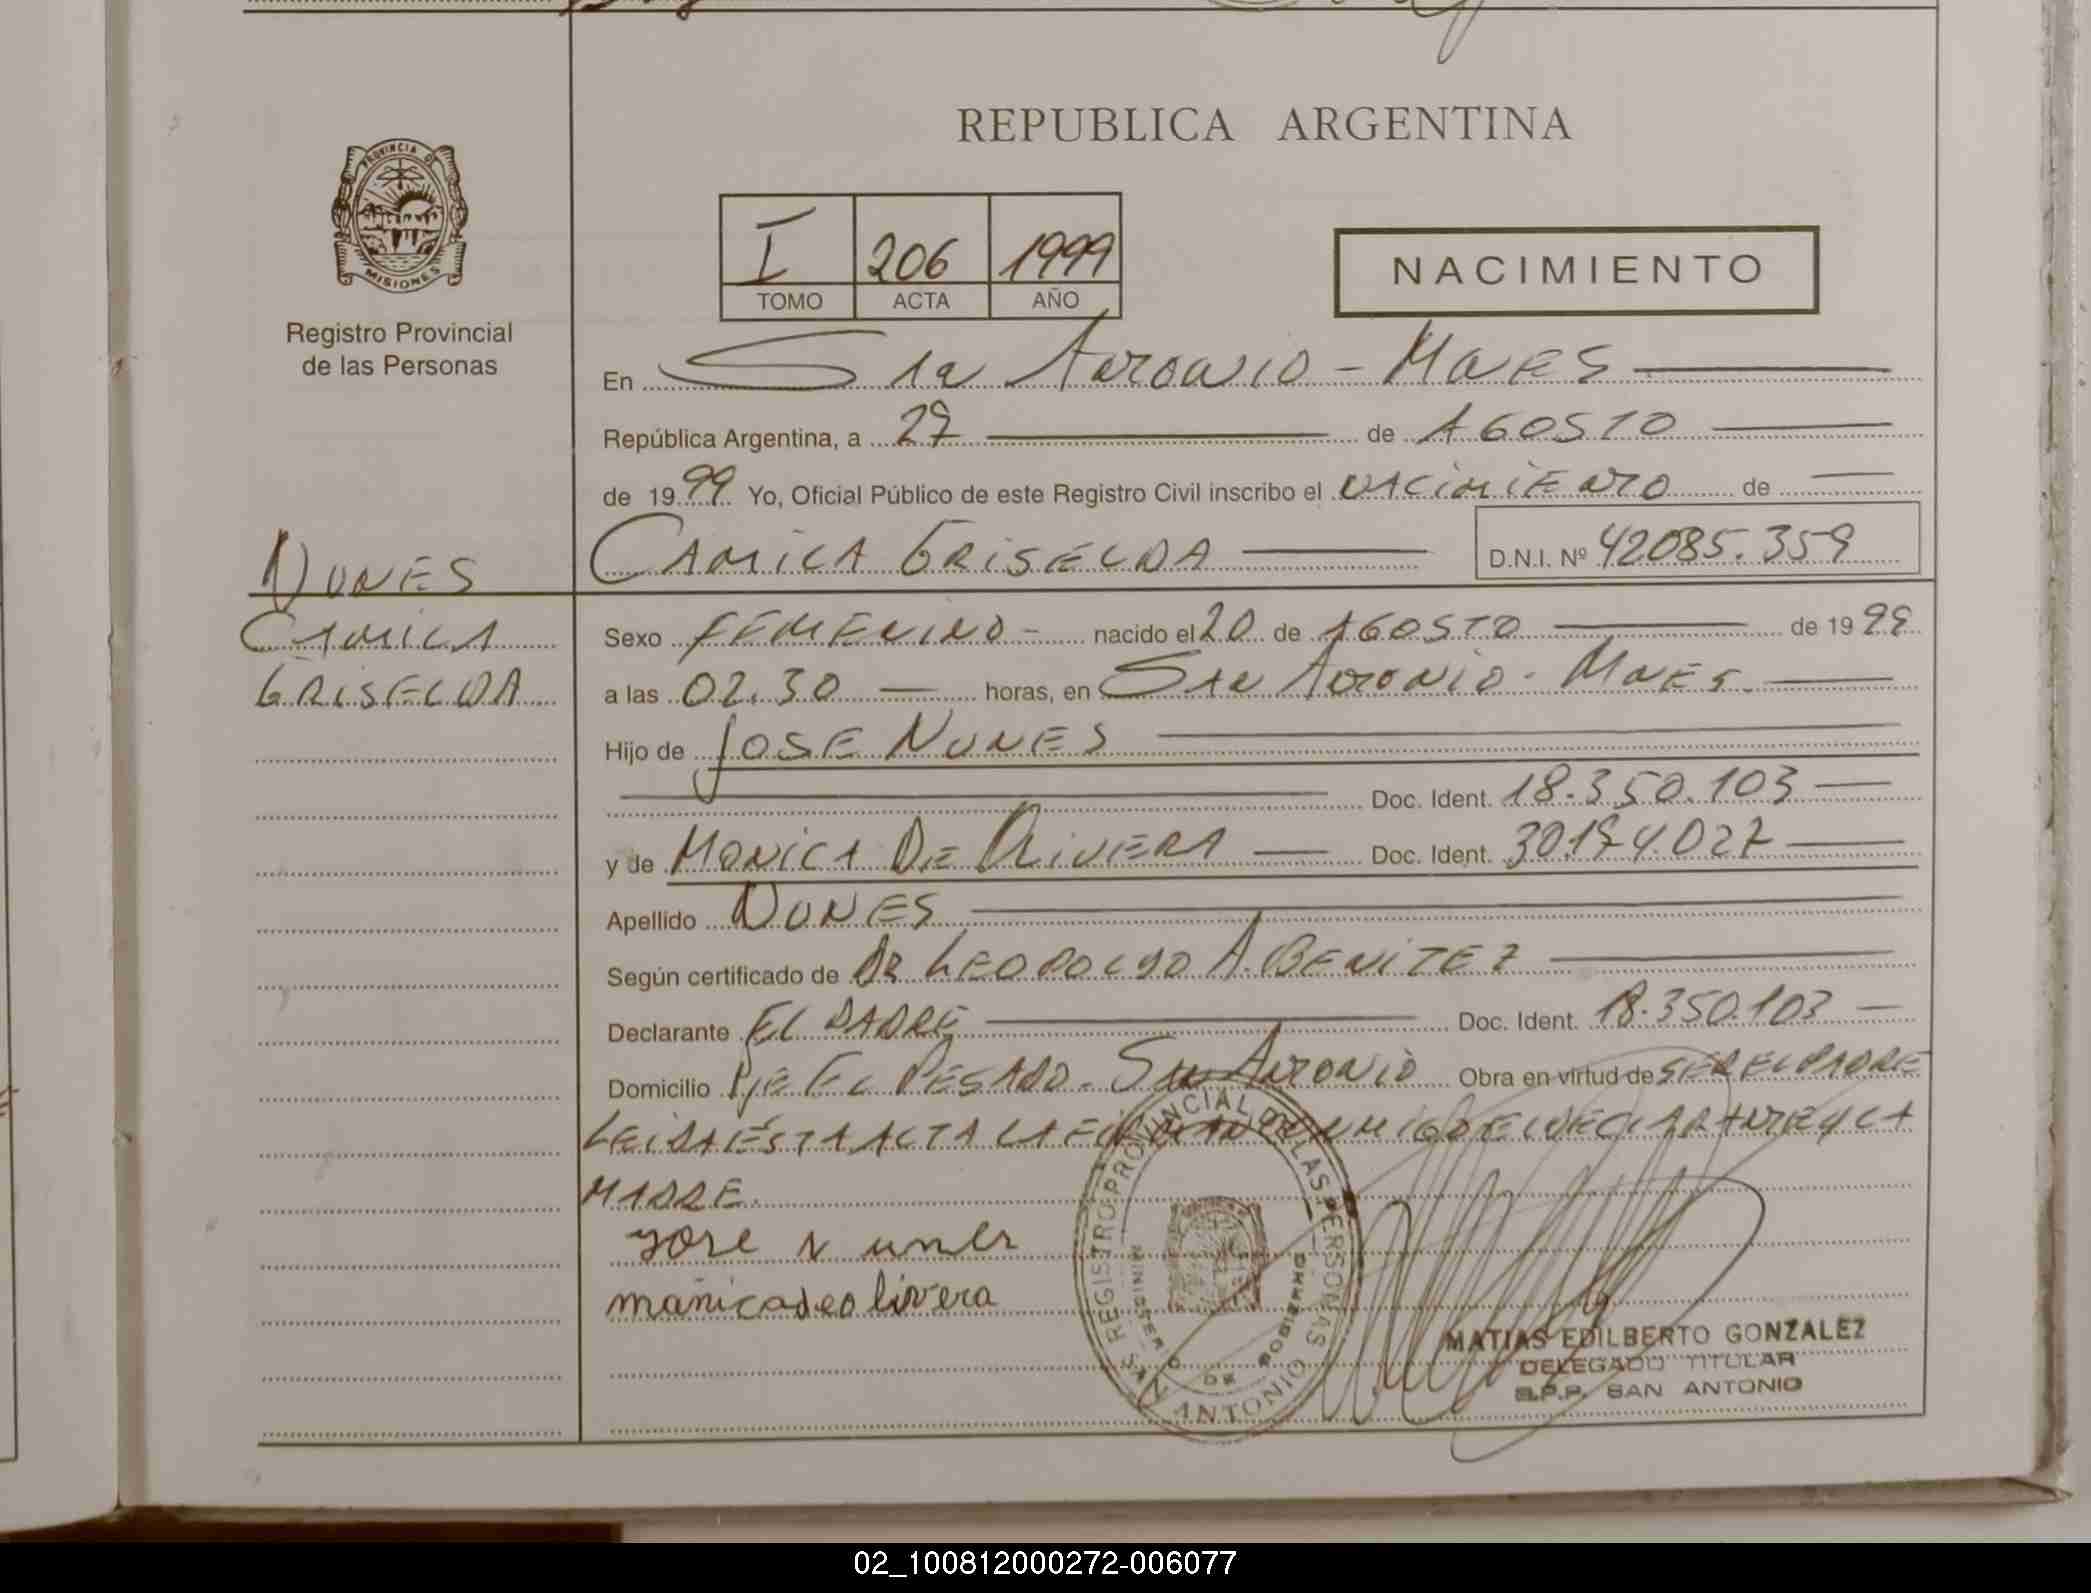 REPUBLICA ARGENTINA
PROVINCIA DE
MISIONES
Registro Provincial
de las Personas
I 206 1999
TOMO ACTA AÑO
NACIMIENTO
En San Antonio - Mnes
República Argentina, a 27 de AGOSTO
de 1999 Yo, Oficial Público de este Registro Civil inscribo el NACIMIENTO de
CAMILA GRISELDA D.N.I. Nº 42085.359
NUNES
CAMILA
GRISELDA
Sexo FEMENINO - nacido el 20 de AGOSTO de 1999
a las 02.30 horas, en San Antonio - Mnes.
Hijo de JOSE NUNES
Doc. Ident. 18.350.103
y de MONICA DE OLIVERA Doc. Ident. 30.194.027
Apellido NUNES
Según certificado de Dr LEOPOLDO A. BENITEZ
Declarante EL PADRE Doc. Ident. 18.350.103
Domicilio Pje EL PESADO - SAN ANTONIO Obra en virtud de SER EL PADRE
LEIDA ESTA ACTA LA FIRMAN CONMIGO EL DECLARANTE Y LA
MADRE.
Jose nunes
manicadeolivera
REGISTRO PROVINCIAL DE LAS PERSONAS
MINISTERIO DE GOBIERNO
SAN ANTONIO
MATIAS EDILBERTO GONZALEZ
DELEGADO TITULAR
R.P.P. SAN ANTONIO
02_100812000272-006077